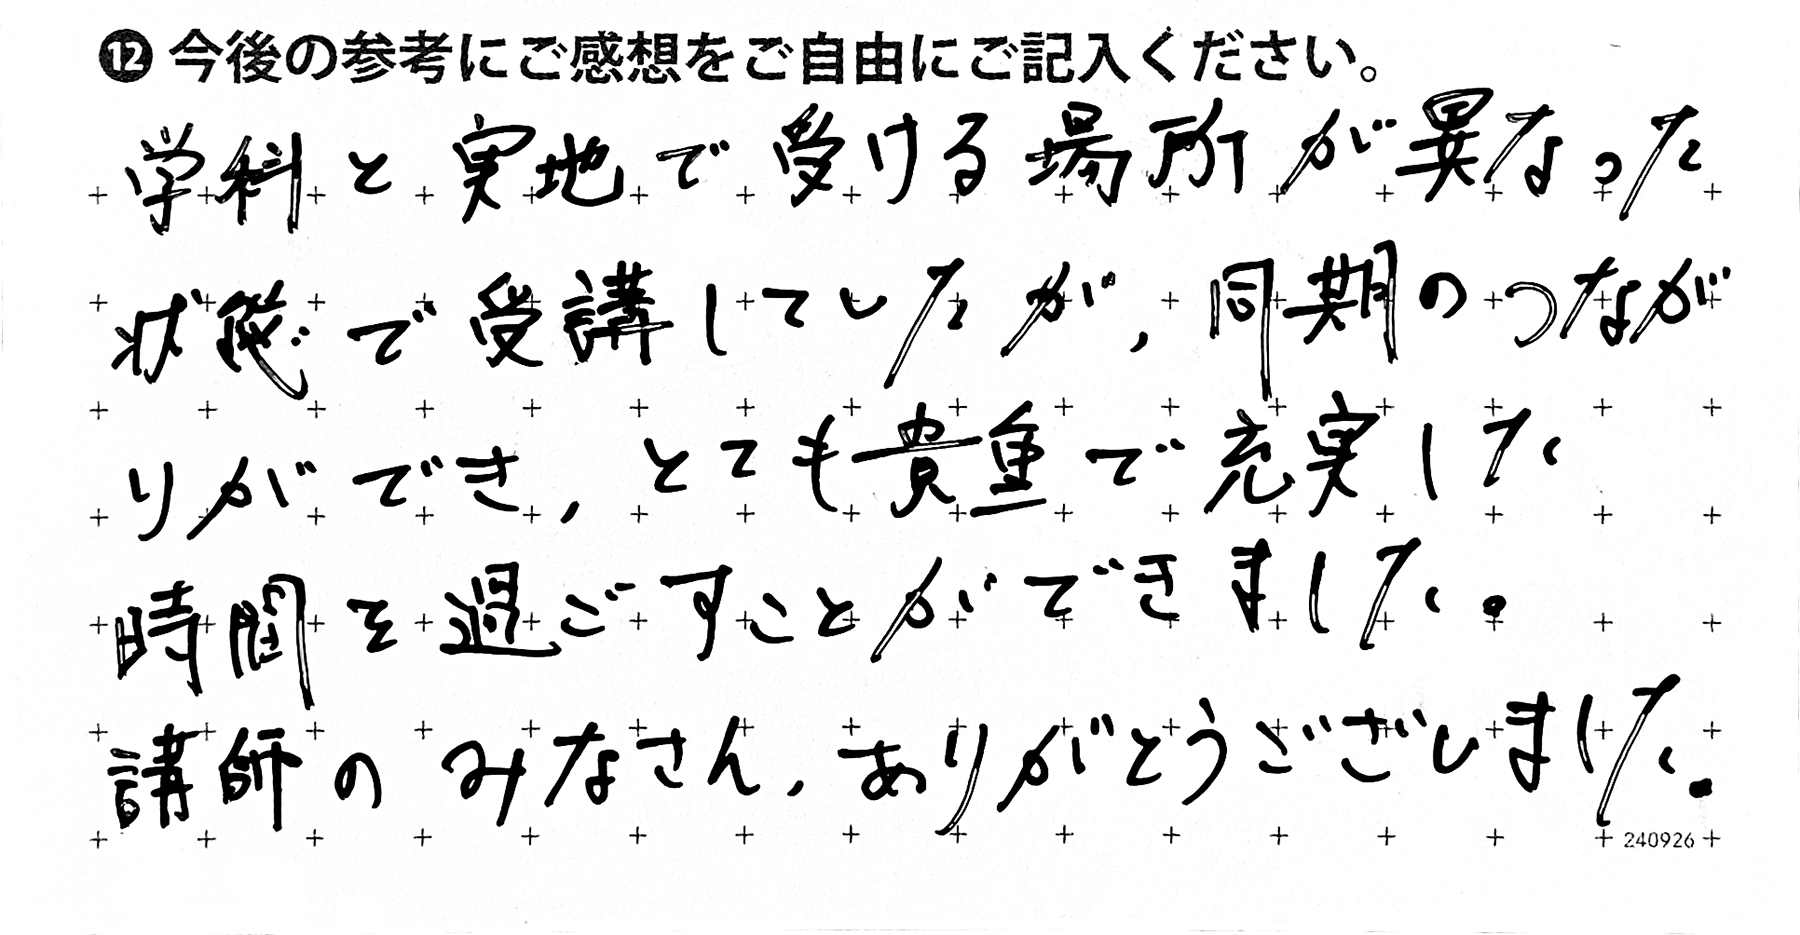 ⓬ 今後の参考にご感想をご自由にご記入ください。
学科と実地で受ける場所が異なった
状態で受講していたが、同期のつなが
りができ、とても貴重で充実した
時間を過ごすことができました。
講師のみなさん、ありがとうございました。
240926